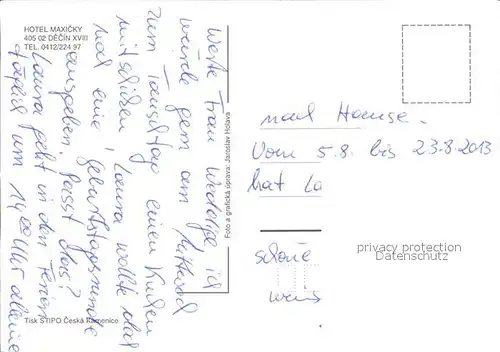 HOTEL MAXIČKY
405 02 DĚČÍN XVIII
TEL. 0412/224 97
Werte Frau ich
würde gern am Mittwoch
zum Tauschtag einen Kuchen
mitschicken, Laura wollte da
mal eine Geburtstagsrunde
ausgeben. Passt das?
Laura geht in den Ferien
täglich um 14 00 Uhr alleine
Foto a grafická úprava: Jaroslav Holava
Tisk STIPO Česká Kamenice
nach Hause.
Vom 5.8. bis 23.8.2013
hat La
schöne
wün
privacy protection
Datenschutz